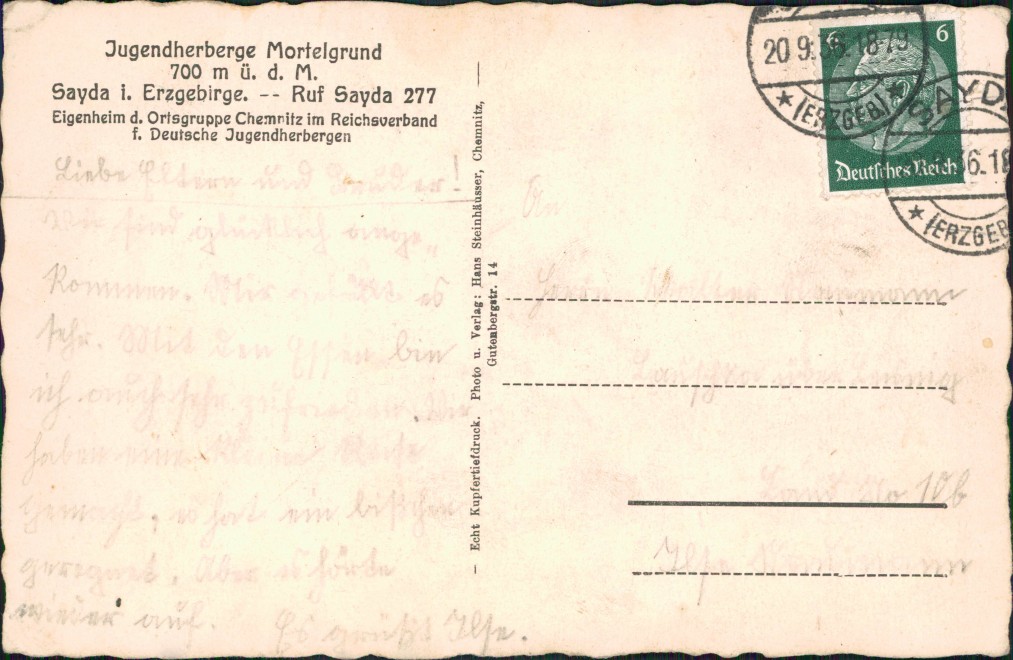 Jugendherberge Mortelgrund
700 m ü. d. M.
Sayda i. Erzgebirge. -- Ruf Sayda 277
Eigenheim d. Ortsgruppe Chemnitz im Reichsverband
f. Deutsche Jugendherbergen
Liebe Eltern und Bruder!
Wir sind glücklich ange„
kommen. Mir gefällt es
sehr. Mit den Essen bin
ich auch sehr zufrieden. Wir
haben eine kleine Reise
gemacht, es hat ein bißchen
geregnet. Aber es hörte
wieder auf. Es grüßt Ilse.
- Echt Kupfertiefdruck. Photo u. Verlag: Hans Steinhäusser, Chemnitz, -
Gutenbergstr. 14
An
Herrn Walter Naumann
über
Land No 10b
Ilse Naumann
20 9.36.18-19
(ERZGEB)
6
6
Deutsches Reich
SAYDA
36.18
(ERZGEB